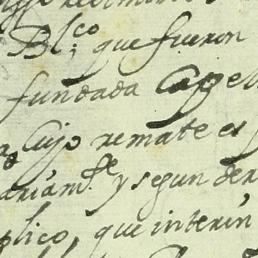 Bl.co que fueron
fundada Capel
Cuyo remate es
ariam.te y segun der
plico, que interin